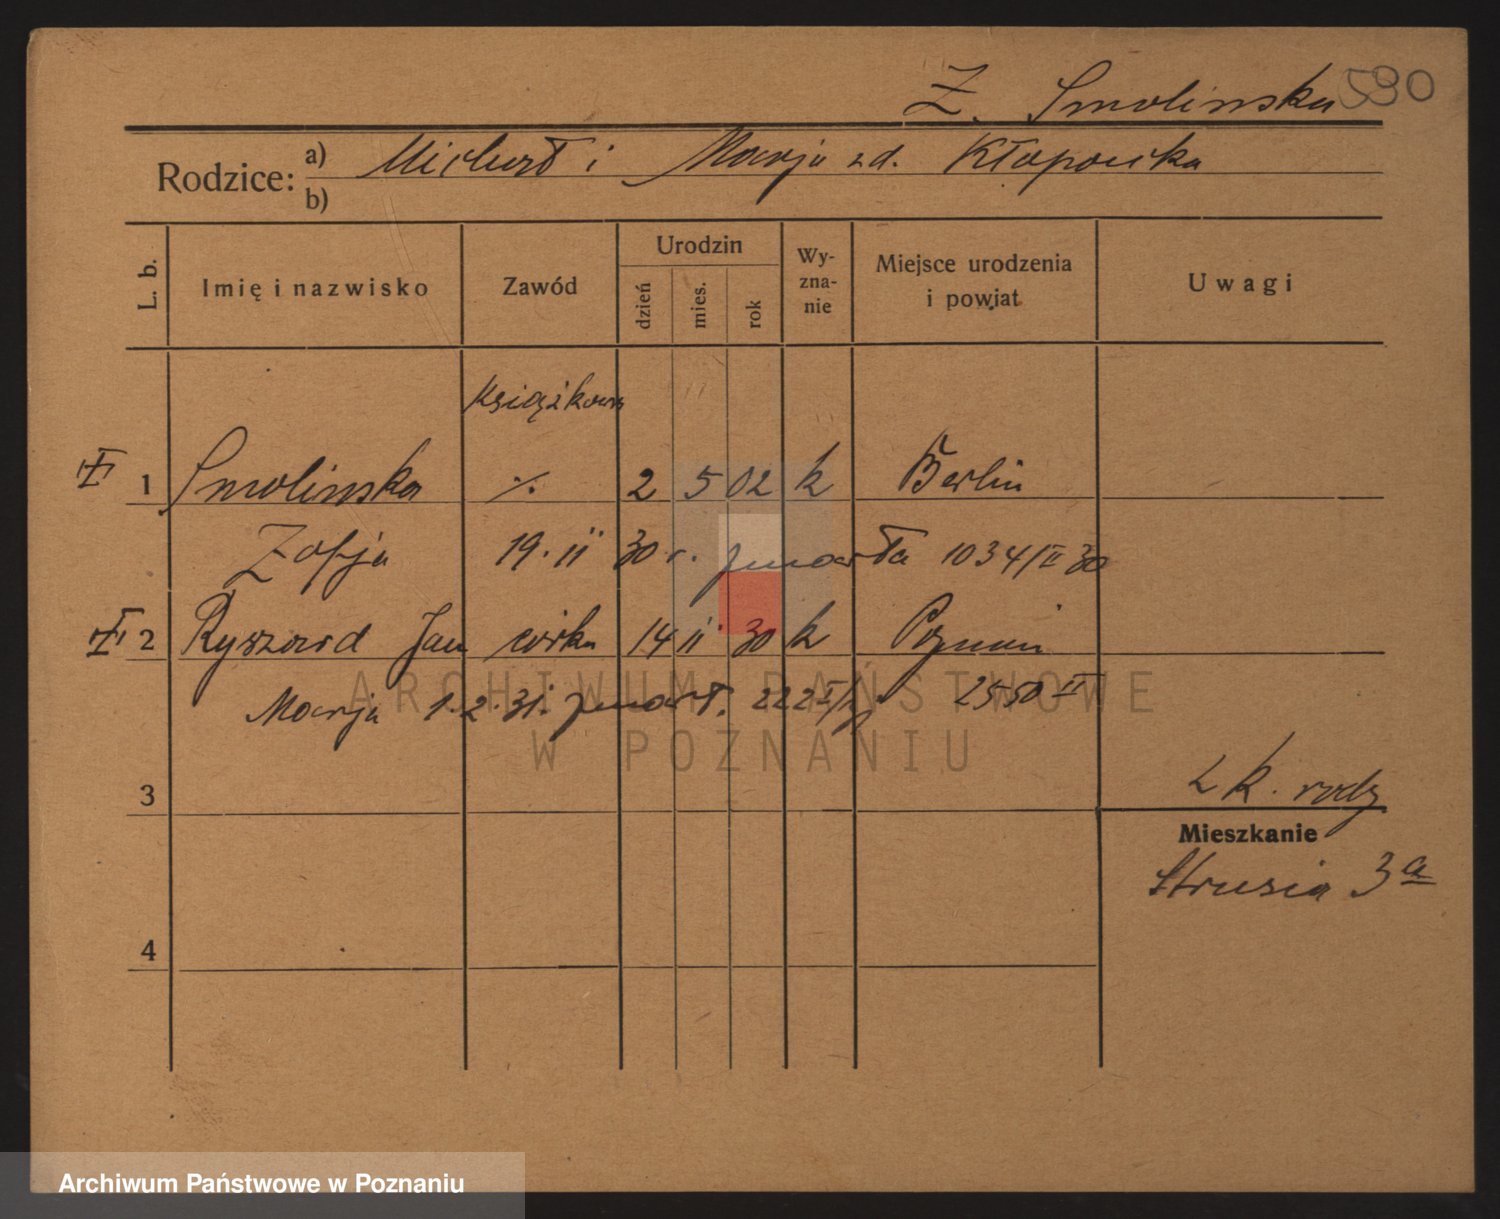 Z. Smolinska 590
Rodzice: a) Michał i Marja zd. Kłopocka
b)
L. b. Imię i nazwisko Zawód Urodzin dzień mies. rok Wyznanie Miejsce urodzenia i powiat Uwagi
Książkowa
1 Smolinska ./. 2 5 02 k Berlin
Zofja 19. II 30 r. zmarła 1034/II 30
2 Ryszard Jan córka 14 II 30 k Poznań
Marja 1. 2. 31. zmarł. 222 2550 II
3
Mieszkanie
Strusia 3a
4
ARCHIWUM PAŃSTWOWE
W POZNANIU
Archiwum Państwowe w Poznaniu